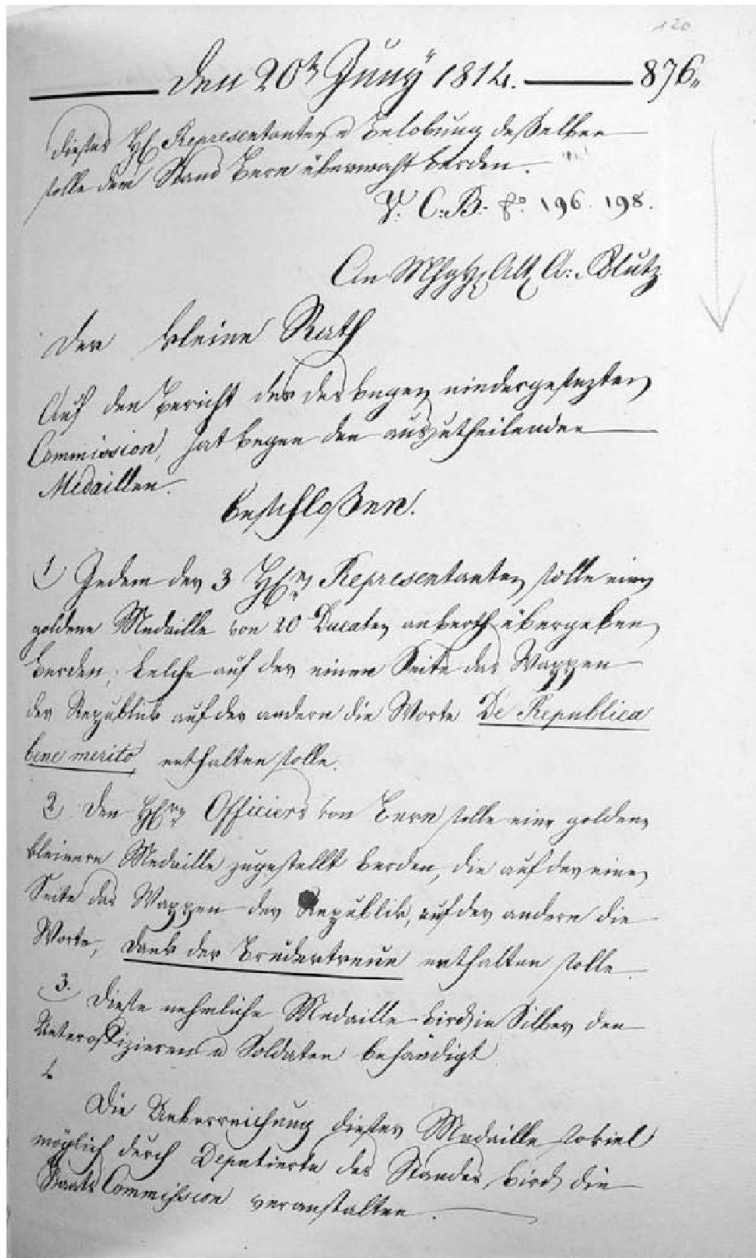 120
Den 20t Juny 1814. 876.
dieser HH Representanten u Belobung desselben
solle dem Stand Bern überwacht werden.
V. C: B: fo. 196. 198.
An MhgHH Alt A: Glutz
Der kleine Rath
Auf den Bericht der deswegen niedergesezten
Commission, hat wegen den auszutheilenden
Medaillen.
beschloßen.
1 Jedem der 3 HHrn Representanten solle eine
goldene Medaille von 20 Ducaten anwerth übergeben
werden, welche auf der einen Seite das Wappen
der Republik auf der andern die Worte De Republica
bene merito, enthalten solle.
2 Den HHrn Officiers von Bern solle eine goldene
kleinere Medaille zugestellt werden, die auf der einen
Seite das Wappen der Republik, auf der andern die
Worte, Dank der Brudertreue enthalten solle.
3. Diese nehmliche Medaille wird in Silber den
Unteroffizieren u Soldaten behändigt
4
Die Ueberreichung dieser Medaille soviel
möglich durch Deputierte des Standes, wird die
Staats Commission veranstalten.